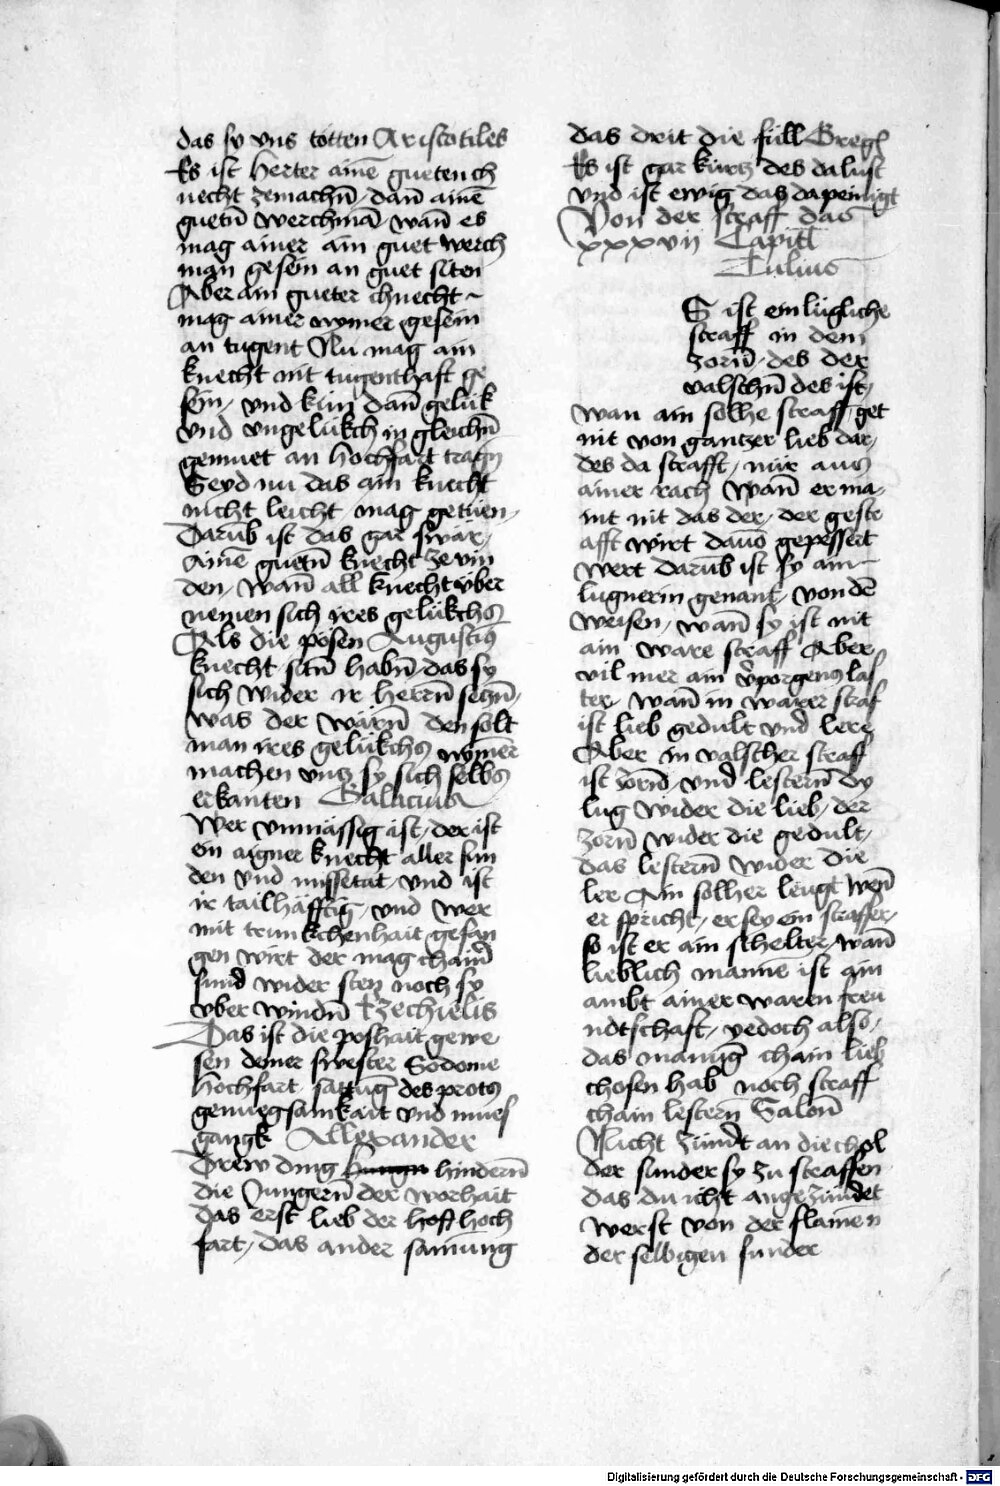 das sy vns totten Aristotiles
Es ist herter ainē gueten ch
necht zemachn̄ dan̄ ainē
guetn̄ werchmā wan̄ es
mag ainer ain guet werch
man gesein an guet siten
Aber ain gueter chnecht
mag ainer nymer gesein
an tugent Nu mag ain
knecht nit tugenthaft ge
sein, vnd kün dan̄ gelük
vnd vngelükch in gleichn̄
gemuet an hochfart tragn̄
Seyd nu das ain knecht
nicht leicht mag getuen,
Darūb ist das gar swär,
Ainē guetn̄ knecht ze vin
den, wan̄ all knecht über
nemen sich ires gelükchs
Als die posen Augustiꝰ
knecht sitn̄ habn̄ das sy
sich wider ir herrn̄ seczn̄,
was der wärn̄ den solt
man ires gelükchs nymer
machen vncz sy sich selbs
erkanten Galacius
Wer vnmässig ist, der ist
ein aigner knecht aller sun
den vnd missetat, vnd ist
ir tailhäfftig, vnd wer
mit trunkchenhait gefan
gen wirt der mag chaīn̄
sund wider sten noch sy
vber windn̄ Ezechielis
Das ist die poshait gewe
sen deiner swester Sodome
hochfart sattūg des protꝫ
genuegsamkait vnd mues
gangk Allexander
Drew ding hindern̄
die Jungern̄ der worhait
das erst lieb der hoff hoch
fart, das ander samūng
das drit die füll Gregꝰ
Es ist gar kurcz des da lust
vnd ist ewig das da peinigt
Von der straff das
xxxvij Capitl
Tulius
S ist ein lüglliche
straff in dem
zorn̄ des der
valschn̄ des ist,
wan ain solhe straff get
nit von gantzer lieb dar,
des da strafft, nur aus
ainer rach Wan̄ er ma,
nit nit das der, der gestr
afft wirt dauō gepessert
wert darūb ist sy ain
lugnerin genant, von dē
weisen, wan̄ sy ist nit
ain ware straff Aber
vil mer ain v̄porgens las
ter, wan̄ in warer straf
ist lieb gedult vnd lere
Aber in valscher straff
ist zorn̄, vnd lestern̄ dy
lug wider die lieb, der
zorn̄ wider die gedult,
das lestern̄ wider die
ler Ain solher leugt wen̄
er spricht, er sey ein straffer,
so ist er ain schelter, wan̄
lieblich manne͞ ist ain
ambt ainer waren freu
ndtschafft, yedoch also,
das manūg chain lieb
chosen hab noch straff
chain lestern̄ Salon̄
Nicht zündt an die chol
der sunder sy zu straffen
das du icht angezündet
werst von der flamen
der selbigen sunder